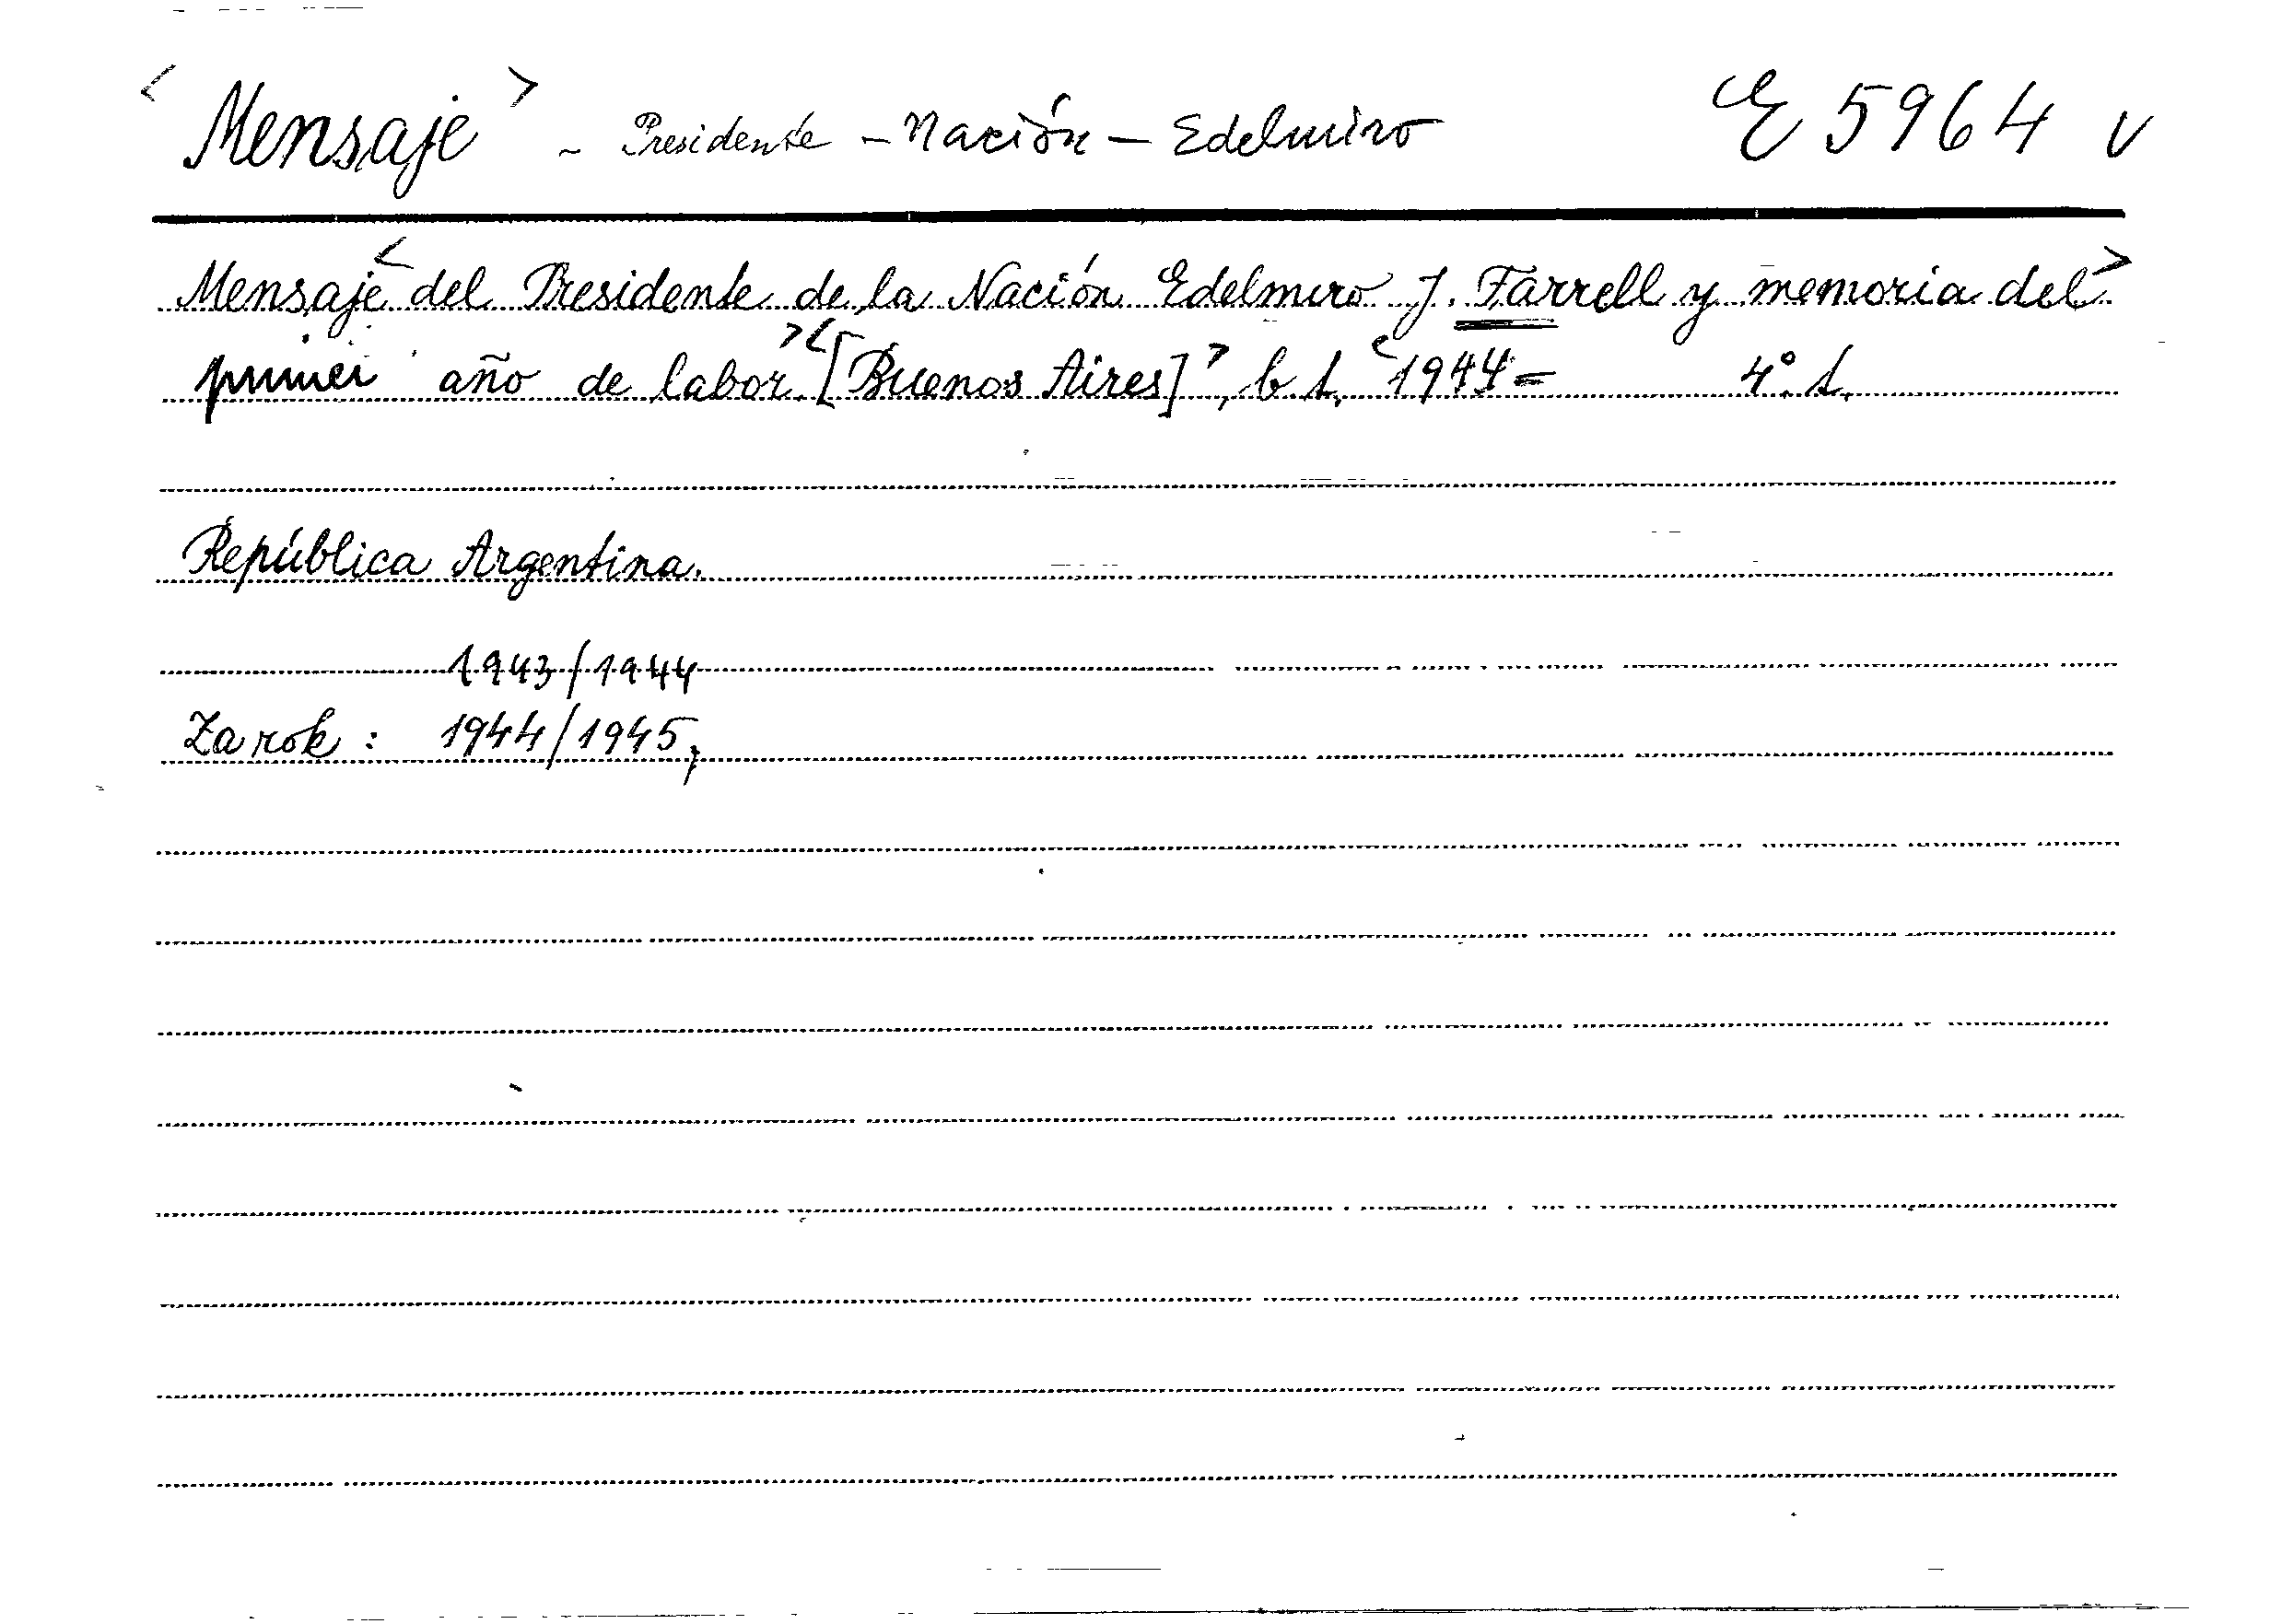 < Mensaje > - Presidente - Nación - Edelmiro E 5964 v
Mensaje < del Presidente de la Nación Edelmiro J. Farrell y memoria del >
primer año de labor. > < [Buenos Aires] >, b. t. < 1944 = 4°. t.
República Argentina.
1943/1944
Za rok : 1944/1945,